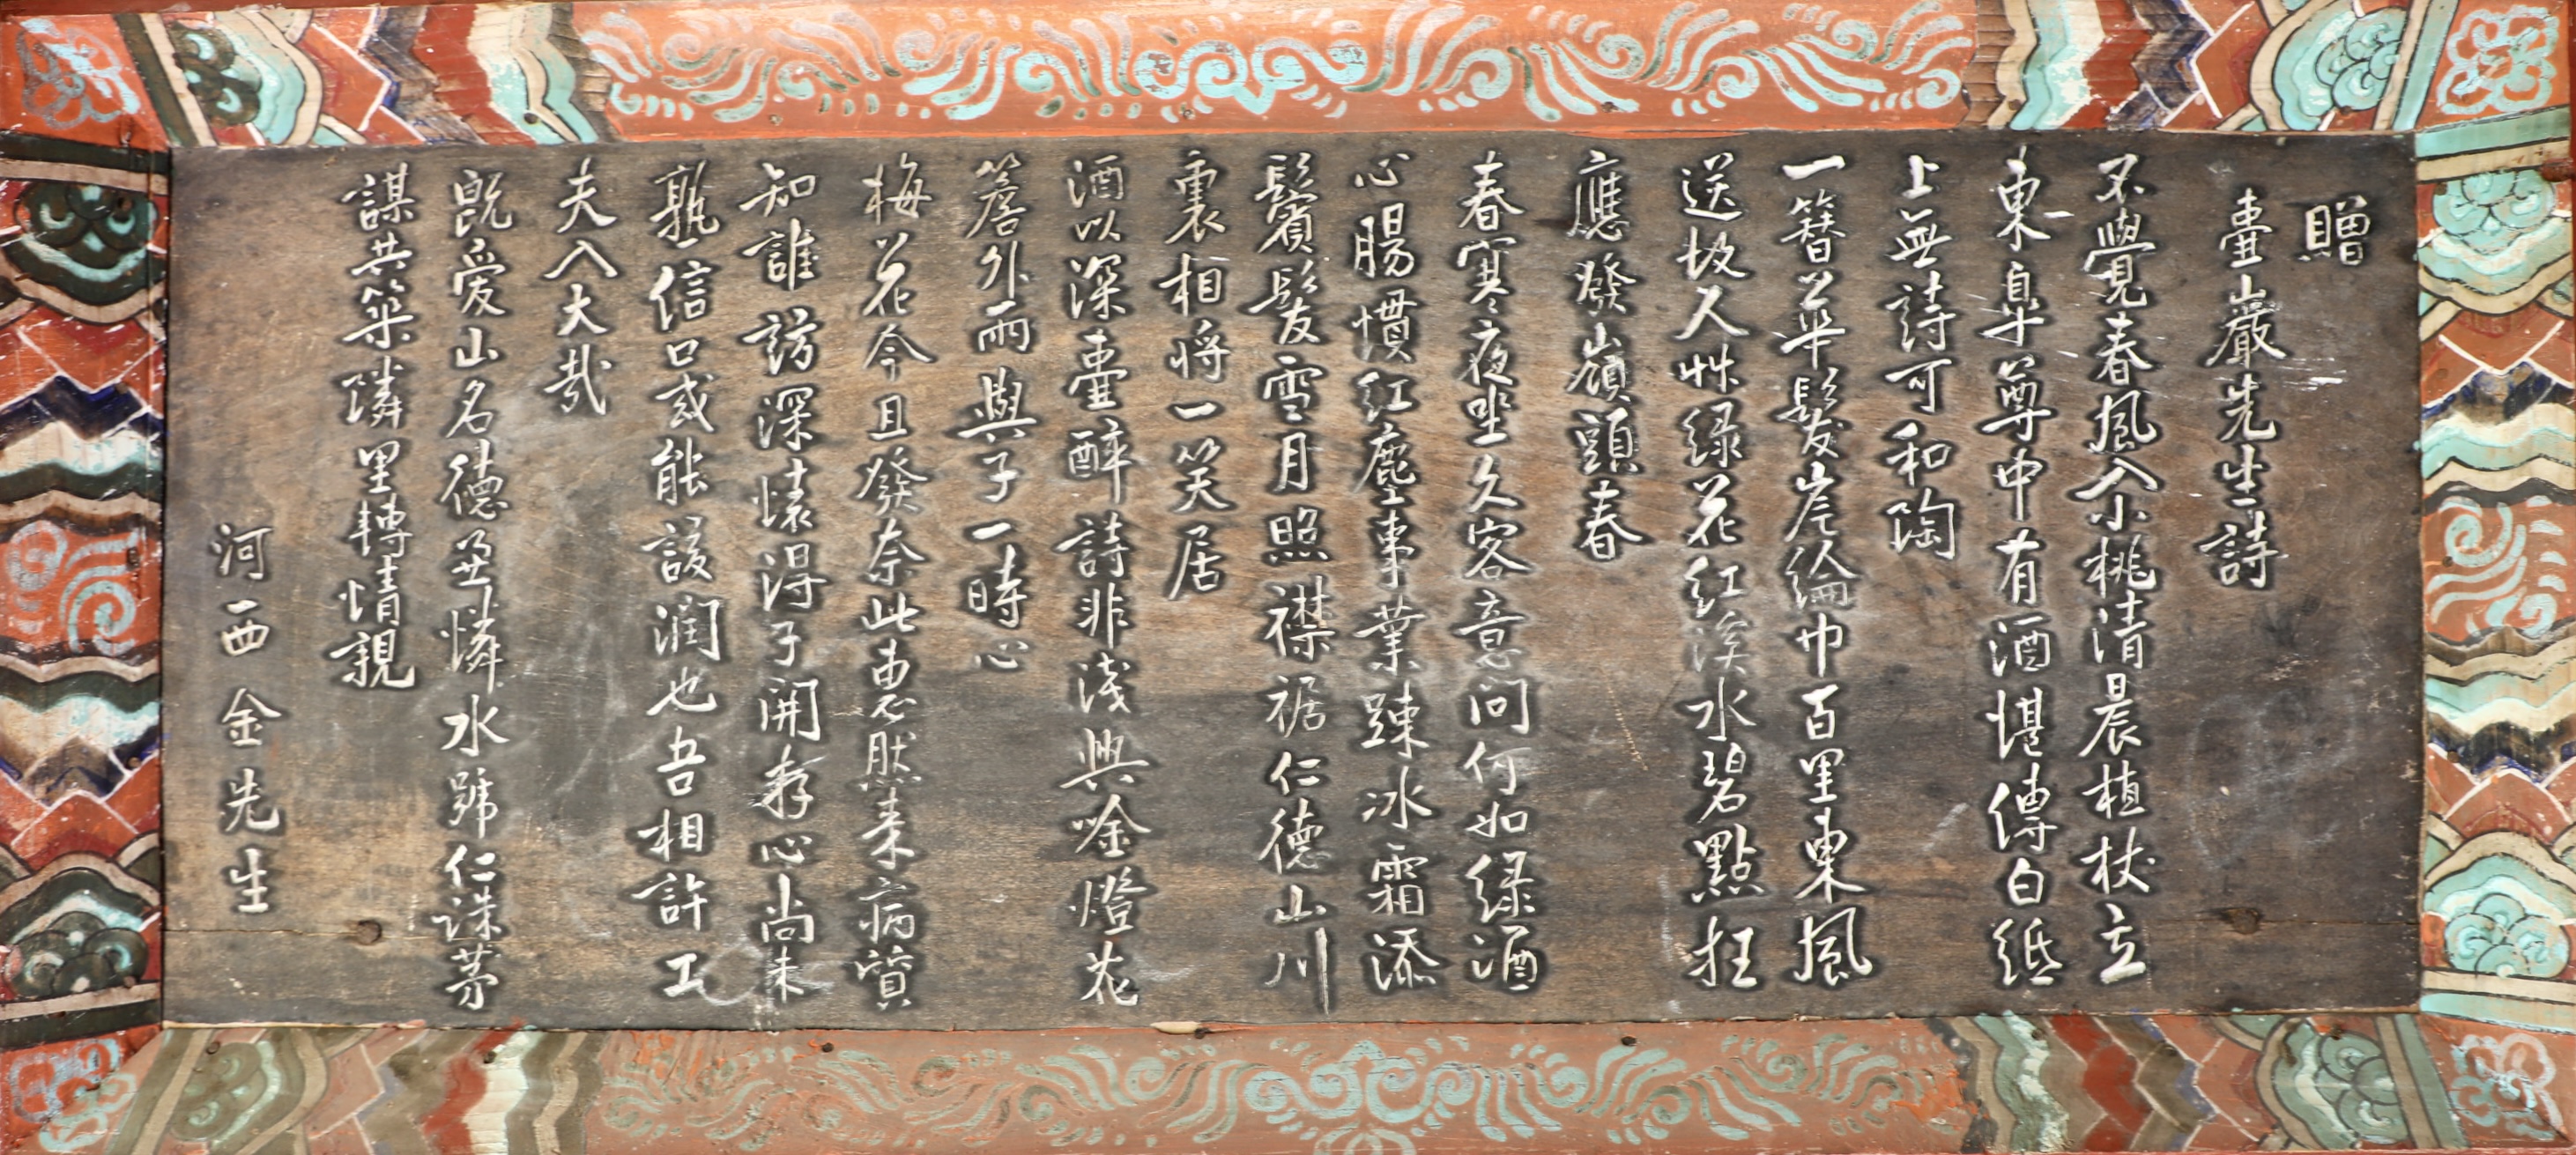 贈
壷巖先生詩
不覺春風入小桃清晨植杖立
東皐尊中有酒堪傳白紙
上無詩可和陶
一簪華髮岸綸巾百里東風
送故人艸綠花紅溪水碧點狂
應發嶺頭春
春寒夜坐久客意問何如綠酒
心腸慣紅塵事業踈冰霜添
鬢髮雪月照襟裾仁德山川
裏相將一笑居
酒以深壷醉詩非淺興唫燈花
簷外雨與子一時心
梅花今且發奈此惠然来病質
知誰訪深懐得子開存心尚未
熟信口或能該潤也吾相許工
夫入大哉
旣愛山名德並憐水號仁誅茅
謀共築隣里轉情親
河西金先生